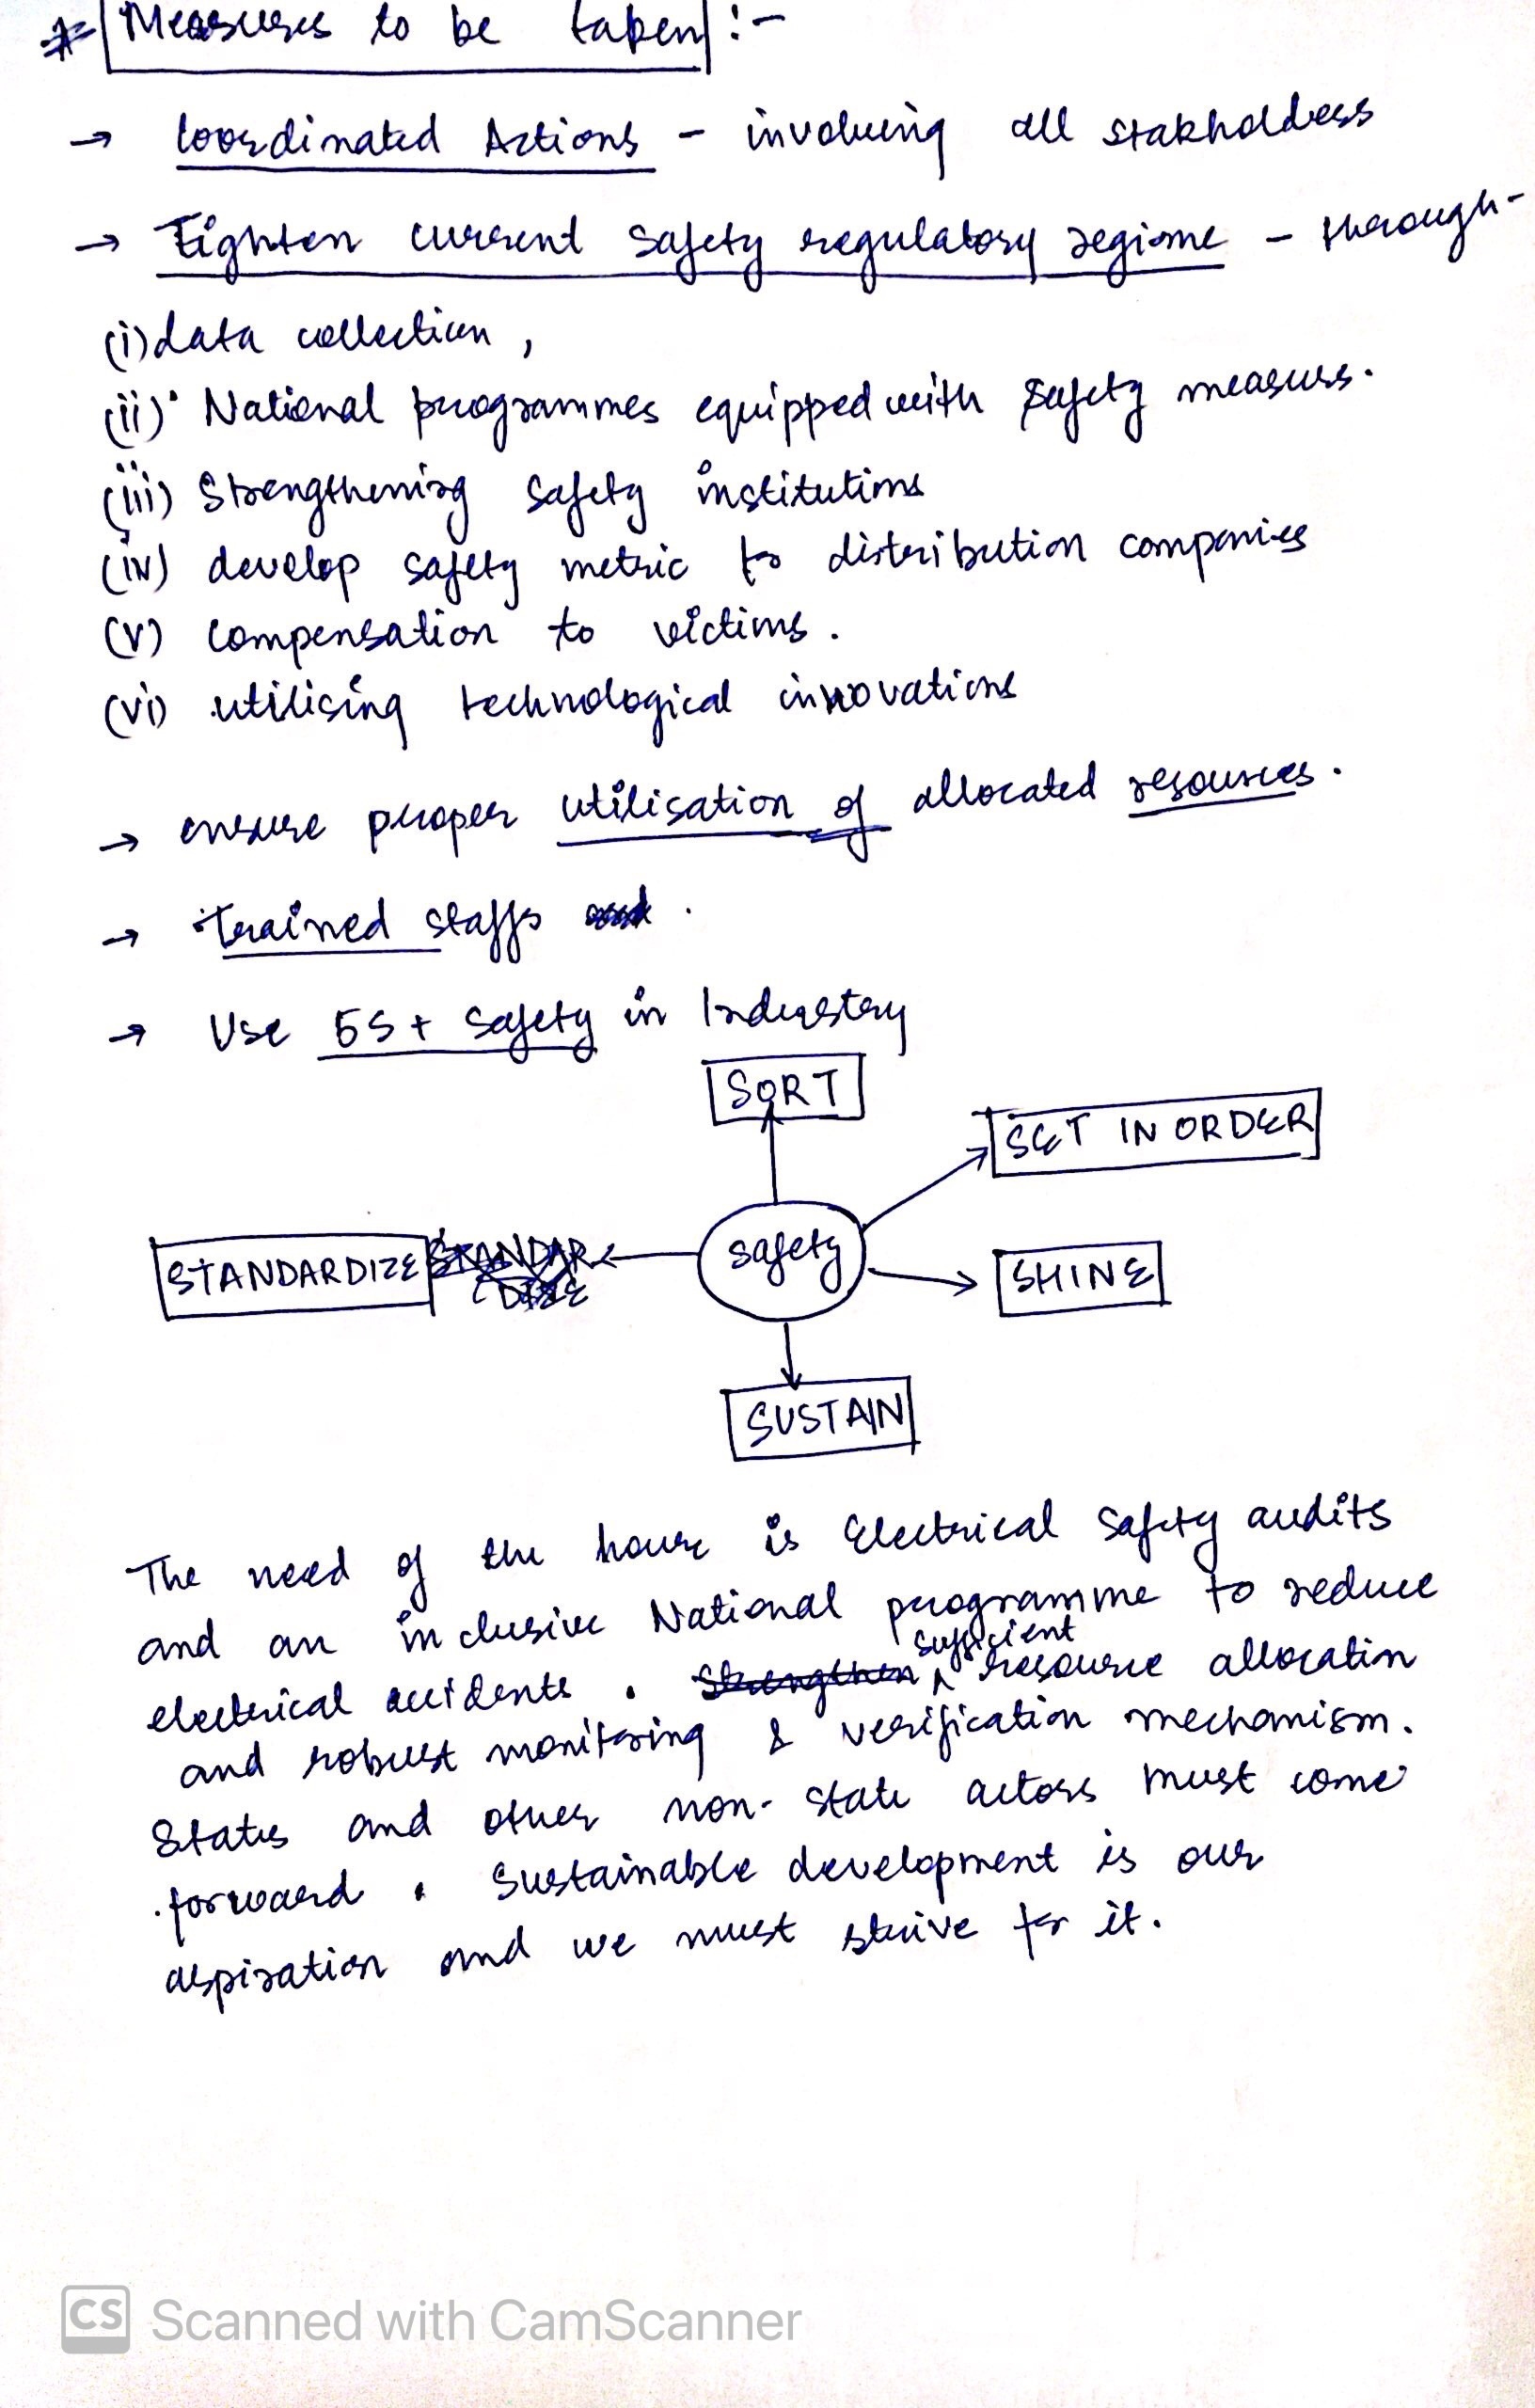 * Measures to be taken :-
→ Coordinated Actions - involving all stakholders
→ Tighten current safety regulatory regime - through-
(i) data collection ,
(ii) National programmes equipped with safety measures.
(iii) Strengthening safety institutions
(iv) develop safety metric to distribution companies
(v) Compensation to victims .
(vi) utilising technological innovations
→ ensure proper utilisation of allocated resources .
→ trained staffs .
→ Use 5S + Safety in Industry
SORT
SET IN ORDER
STANDARDIZE
safety
SHINE
SUSTAIN
The need of the hour is Electrical Safety audits
and an inclusive National programme to reduce
electrical accidents . sufficient resource allocation
and robust monitoring & verification mechanism.
States and other non- state actors must come
forward . Sustainable development is our
aspiration and we must strive for it.
CS Scanned with CamScanner